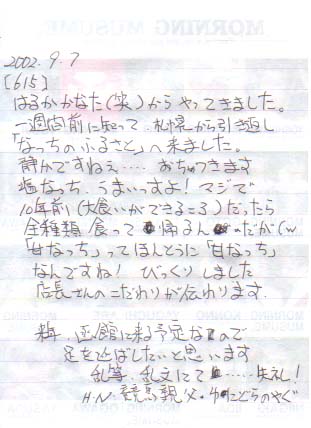 2002.9.7
[615]
はるかかなた(笑)からやってきました。
一週間前に知って、札幌から引き返し
「なっちのふるさと」へ来ました。
静かですねぇ……おちつきます
塩なっち、うまいっすよ!マジで
10年前(大食いができるころ)だったら
全種類 食って帰るん だが(w
「甘なっち」ってほんとうに「甘なっち」
なんですね! びっくりしました
店長さんのこだわりが伝わります.
来年、函館に来る予定なので
足を延ばしたいと思います
乱筆、乱文にて……失礼!
H・N. 競馬親父・